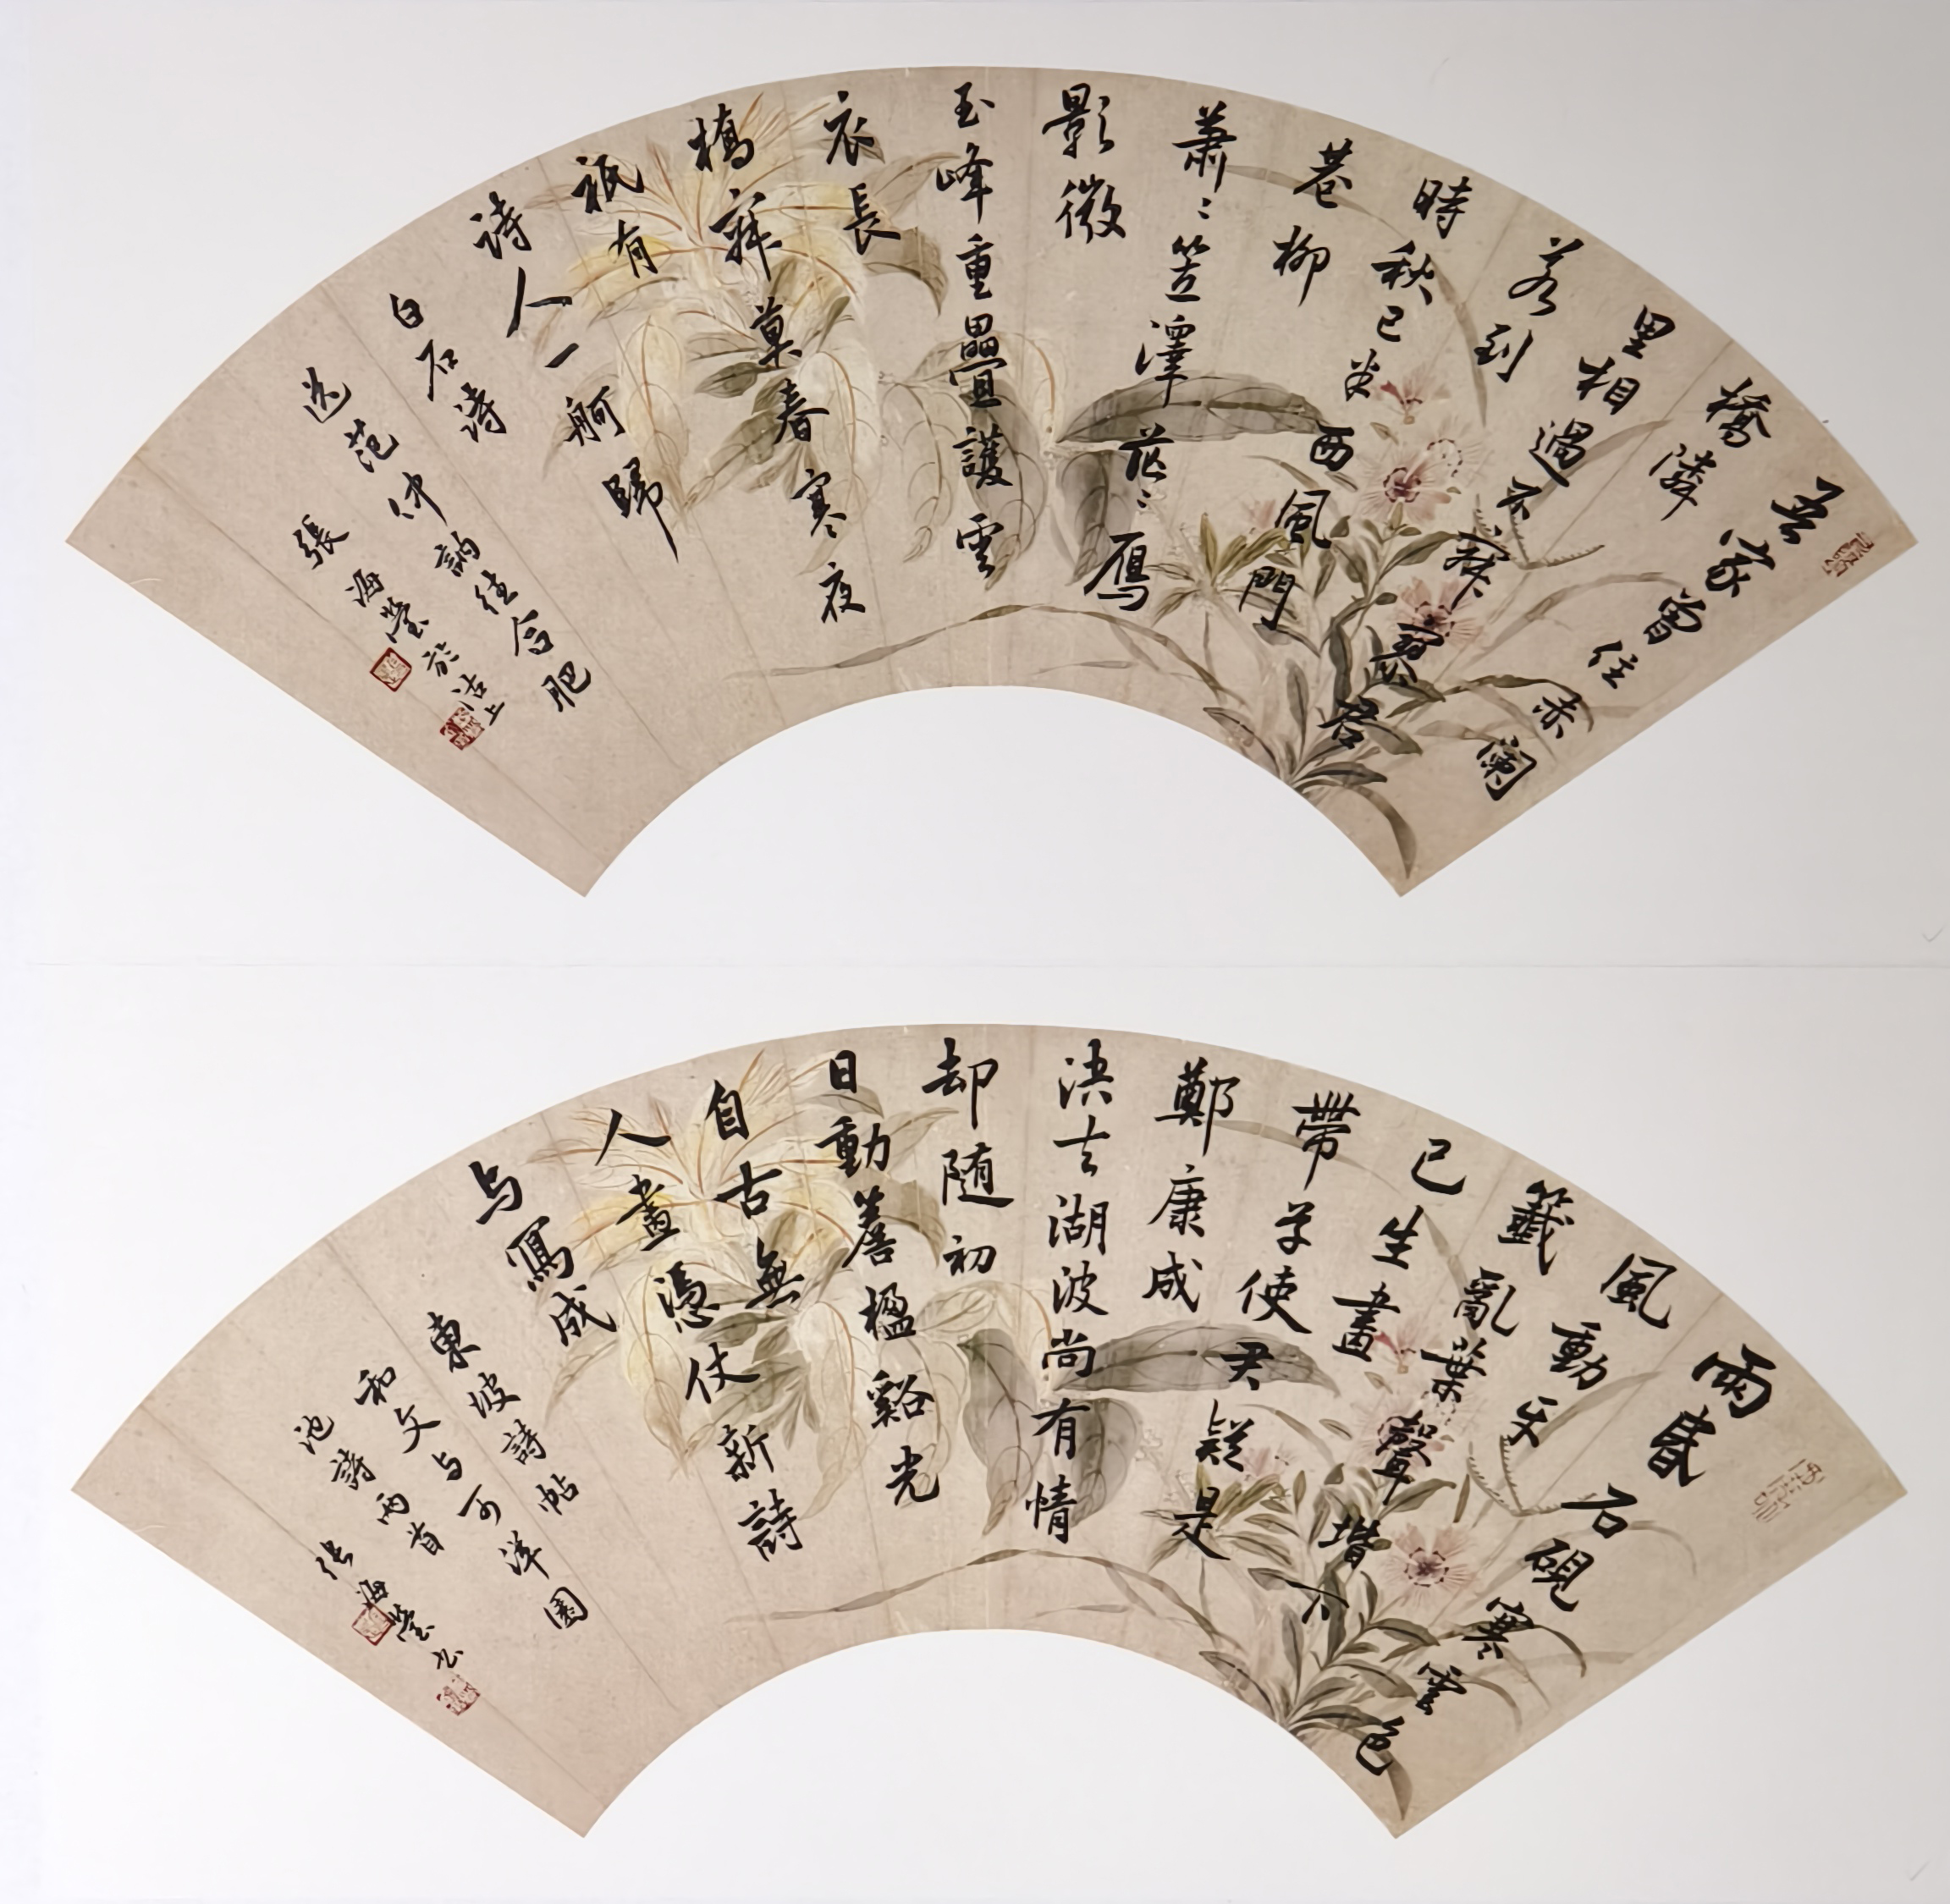 吾家曾住赤闌
橋隣
里相過不寂寥君
若到
時秋已半西風門
巷柳
蕭〻笠澤茫〻雁
影微
玉峰重疊護雲
衣長
橋寂寞春寒夜
祇有
詩人一舸歸
白石詩
送范仲訥往合肥
張海瑩於沽上
雨昏石硯寒雲色
風動牙
籤亂葉聲堦下
已生書
帶草使君疑是
鄭康成
決去湖波尚有情
却随初
日動簷楹谿光
自古無
人畫憑仗新詩
与寫成
東坡詩帖
和文与可洋園
池詩兩首
張海瑩书